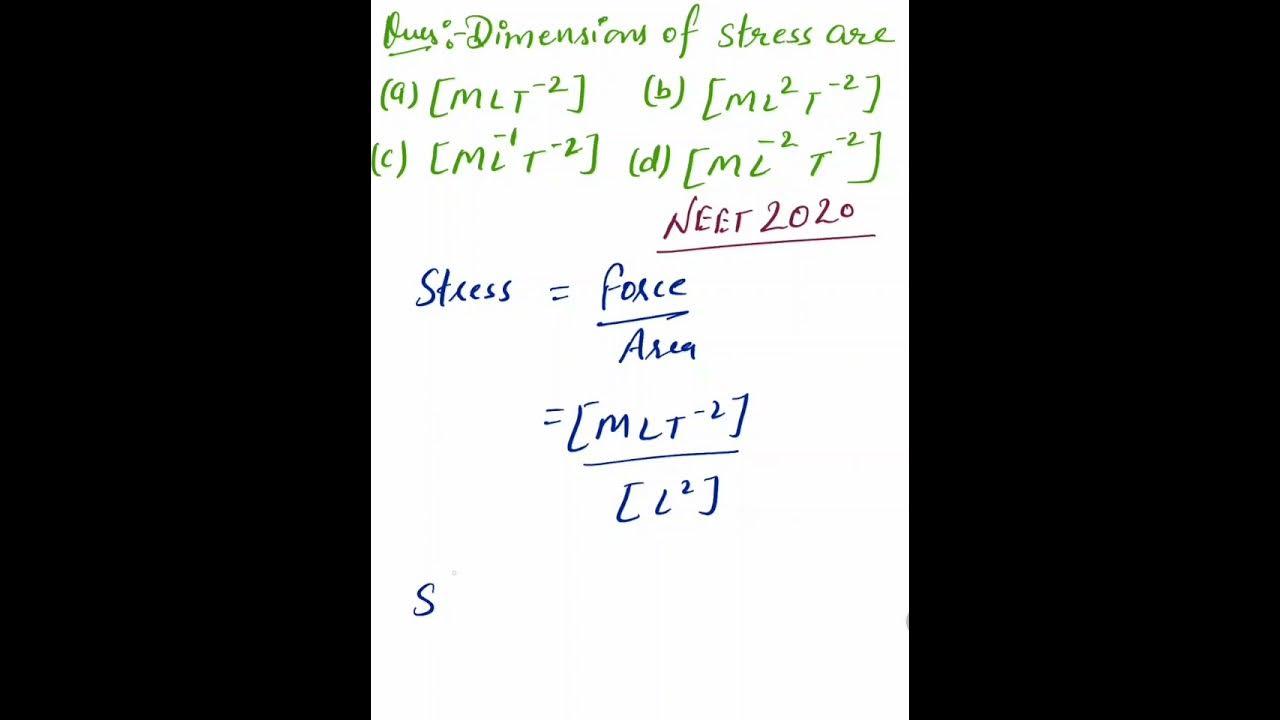 Ques:-Dimensions of stress are
(a) [MLT⁻²] (b) [ML²T⁻²]
(c) [ML⁻¹T⁻²] (d) [ML⁻²T⁻²]
NEET 2020
Stress = force
Area
= [MLT⁻²]
[L²]
S